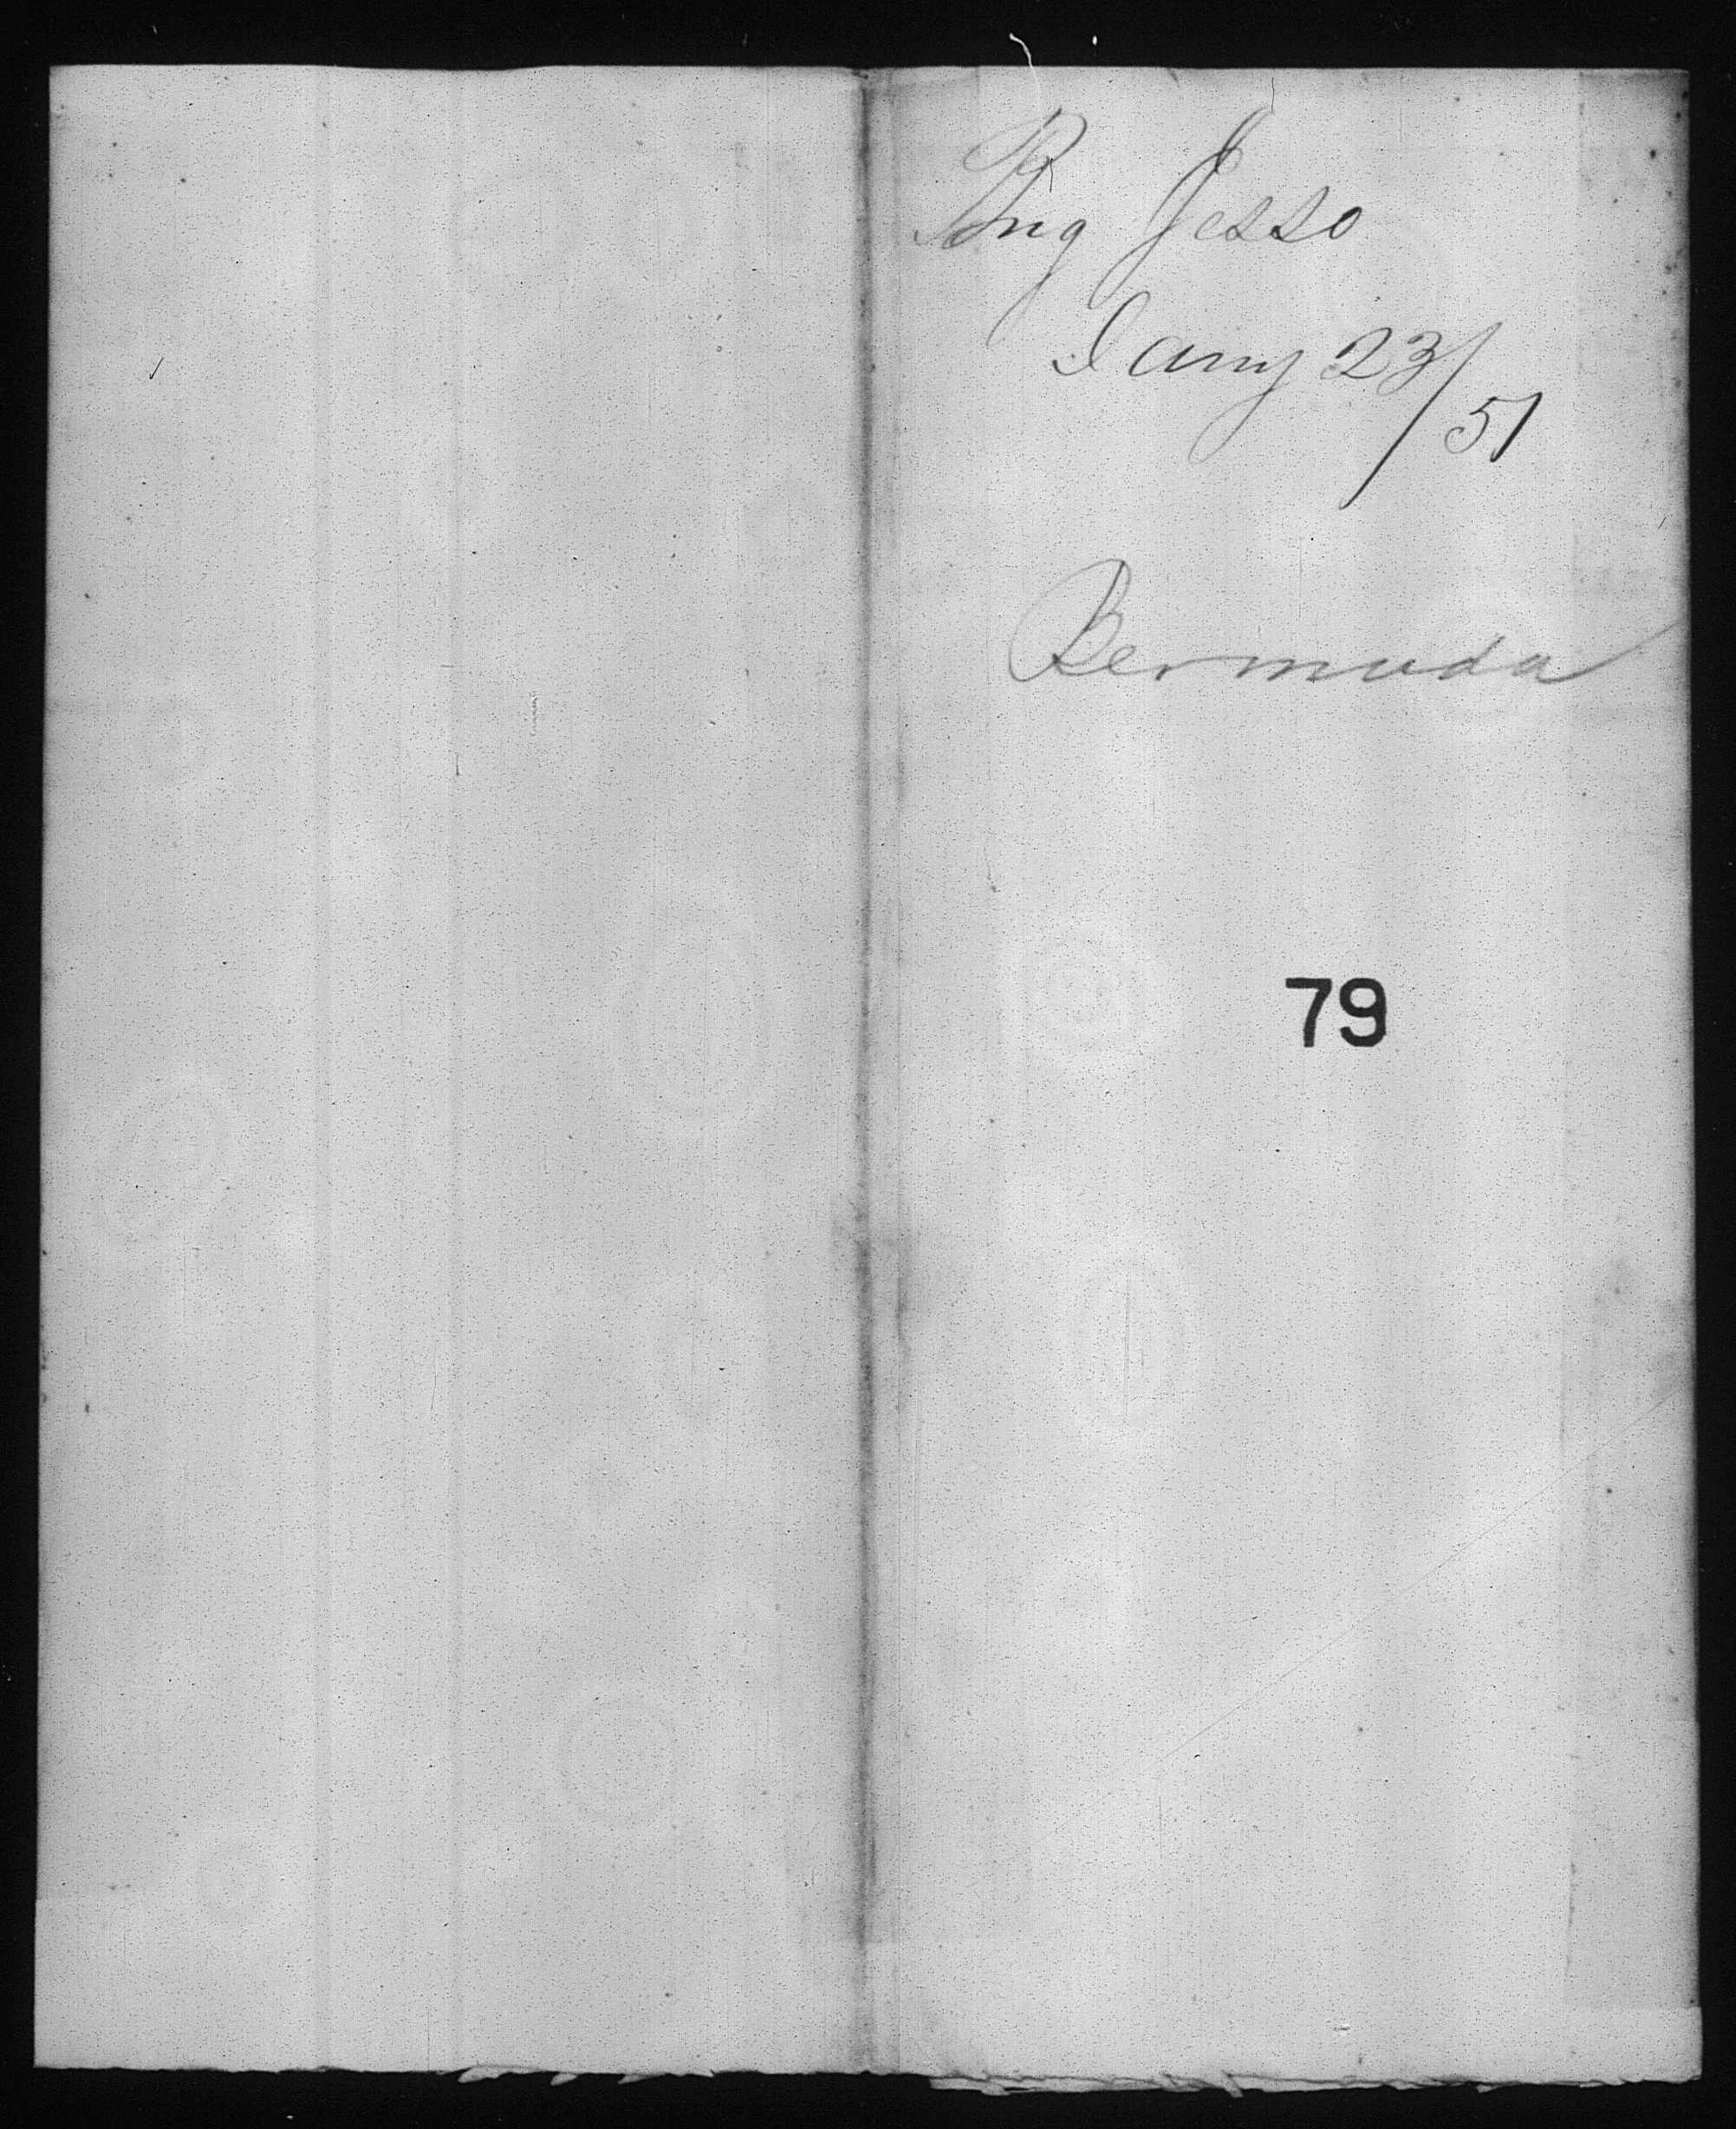 Brig Jesso
Jany 23/51
Bermuda
79